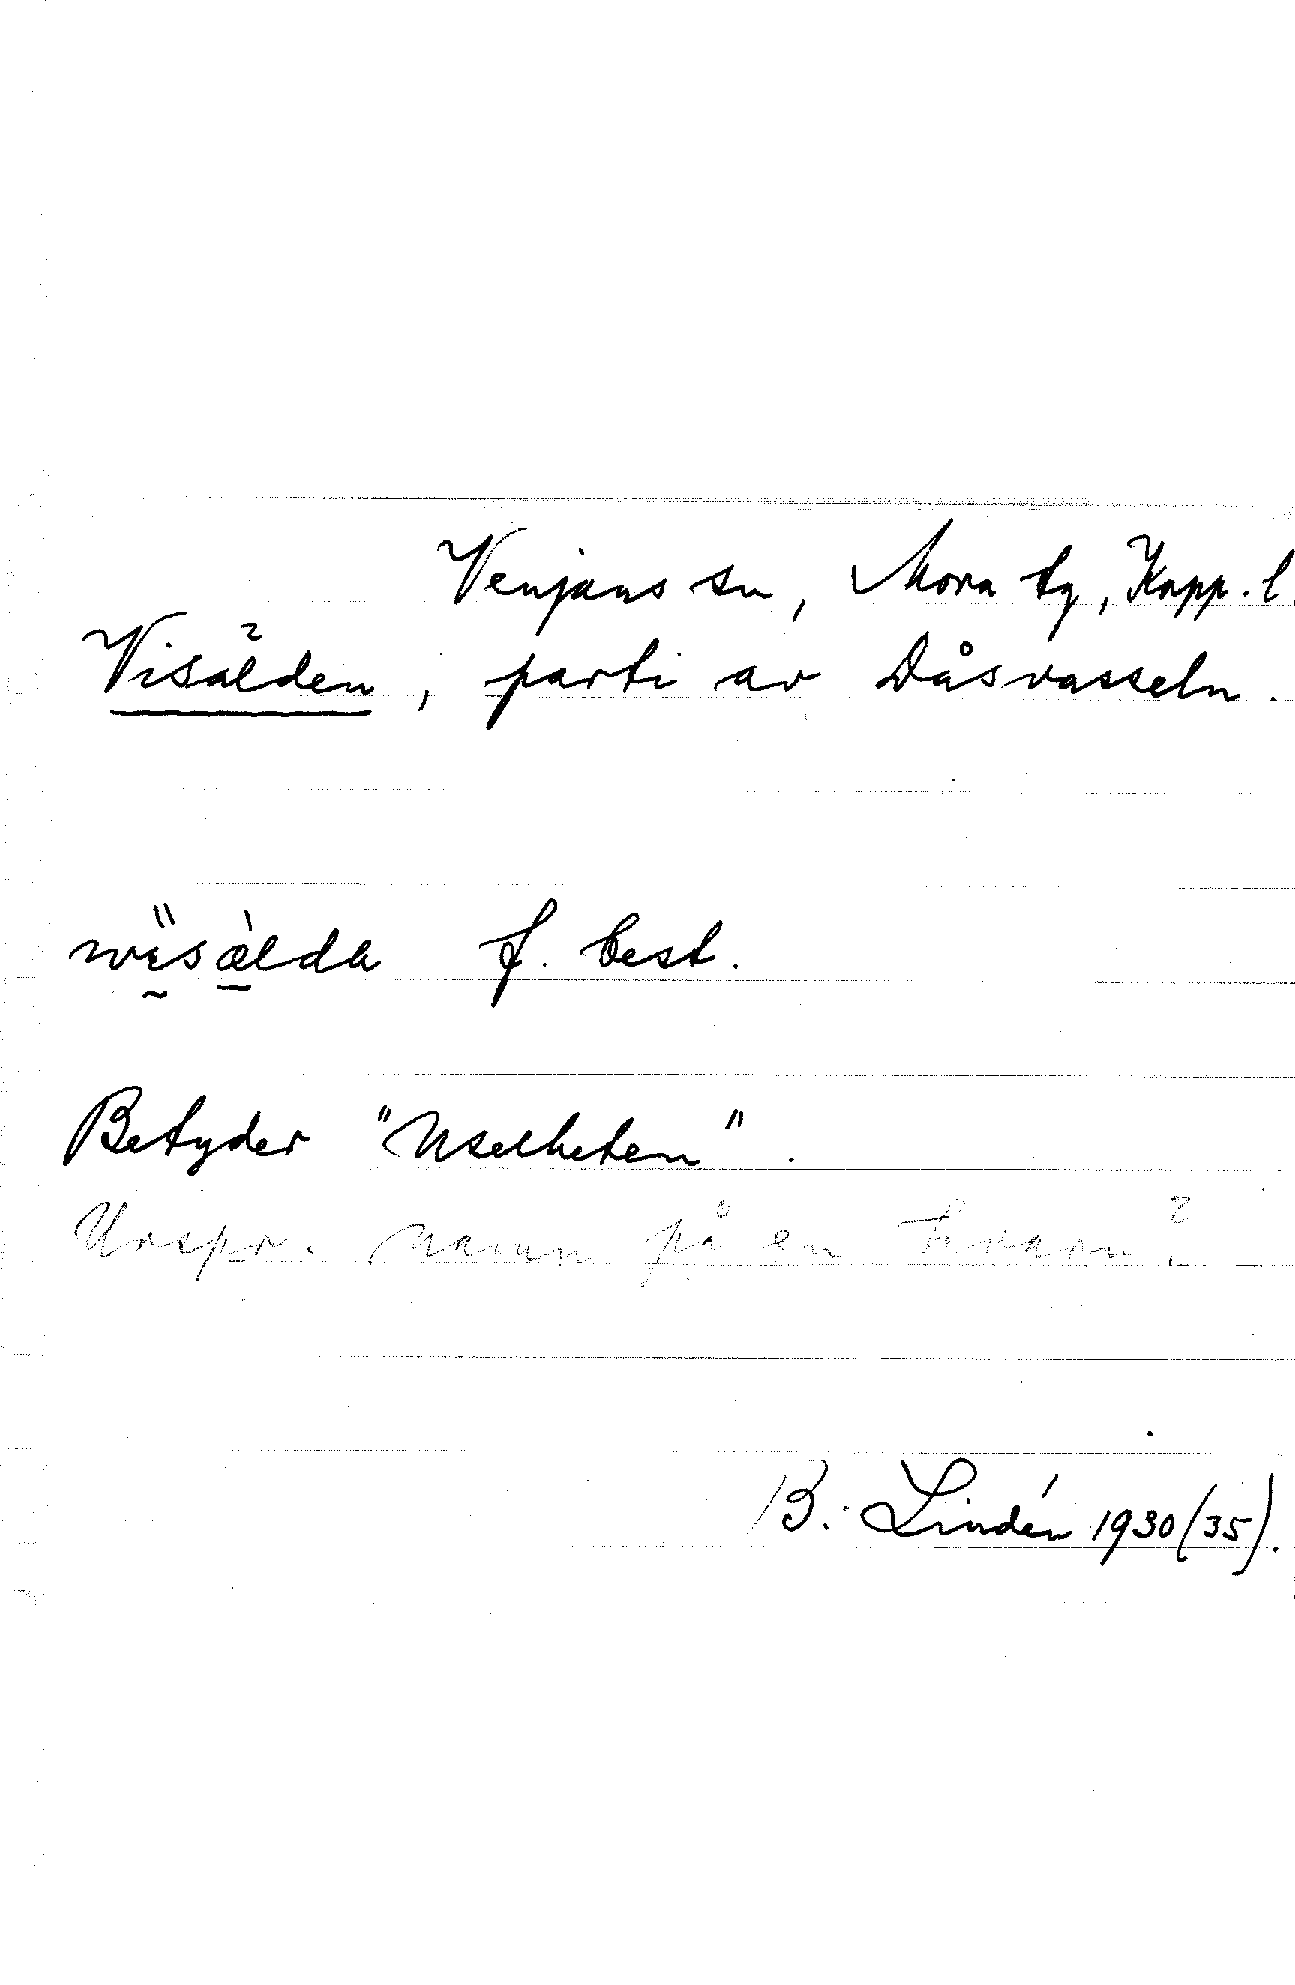 Venjans sn, Mora tg, Kopp. l.
Visälden, parti av Dåsvasseln.
wisälda f. best.
Betyder "Uselheten".
Urspr. namn på en kvarn?
B. Lindén 1930(35).